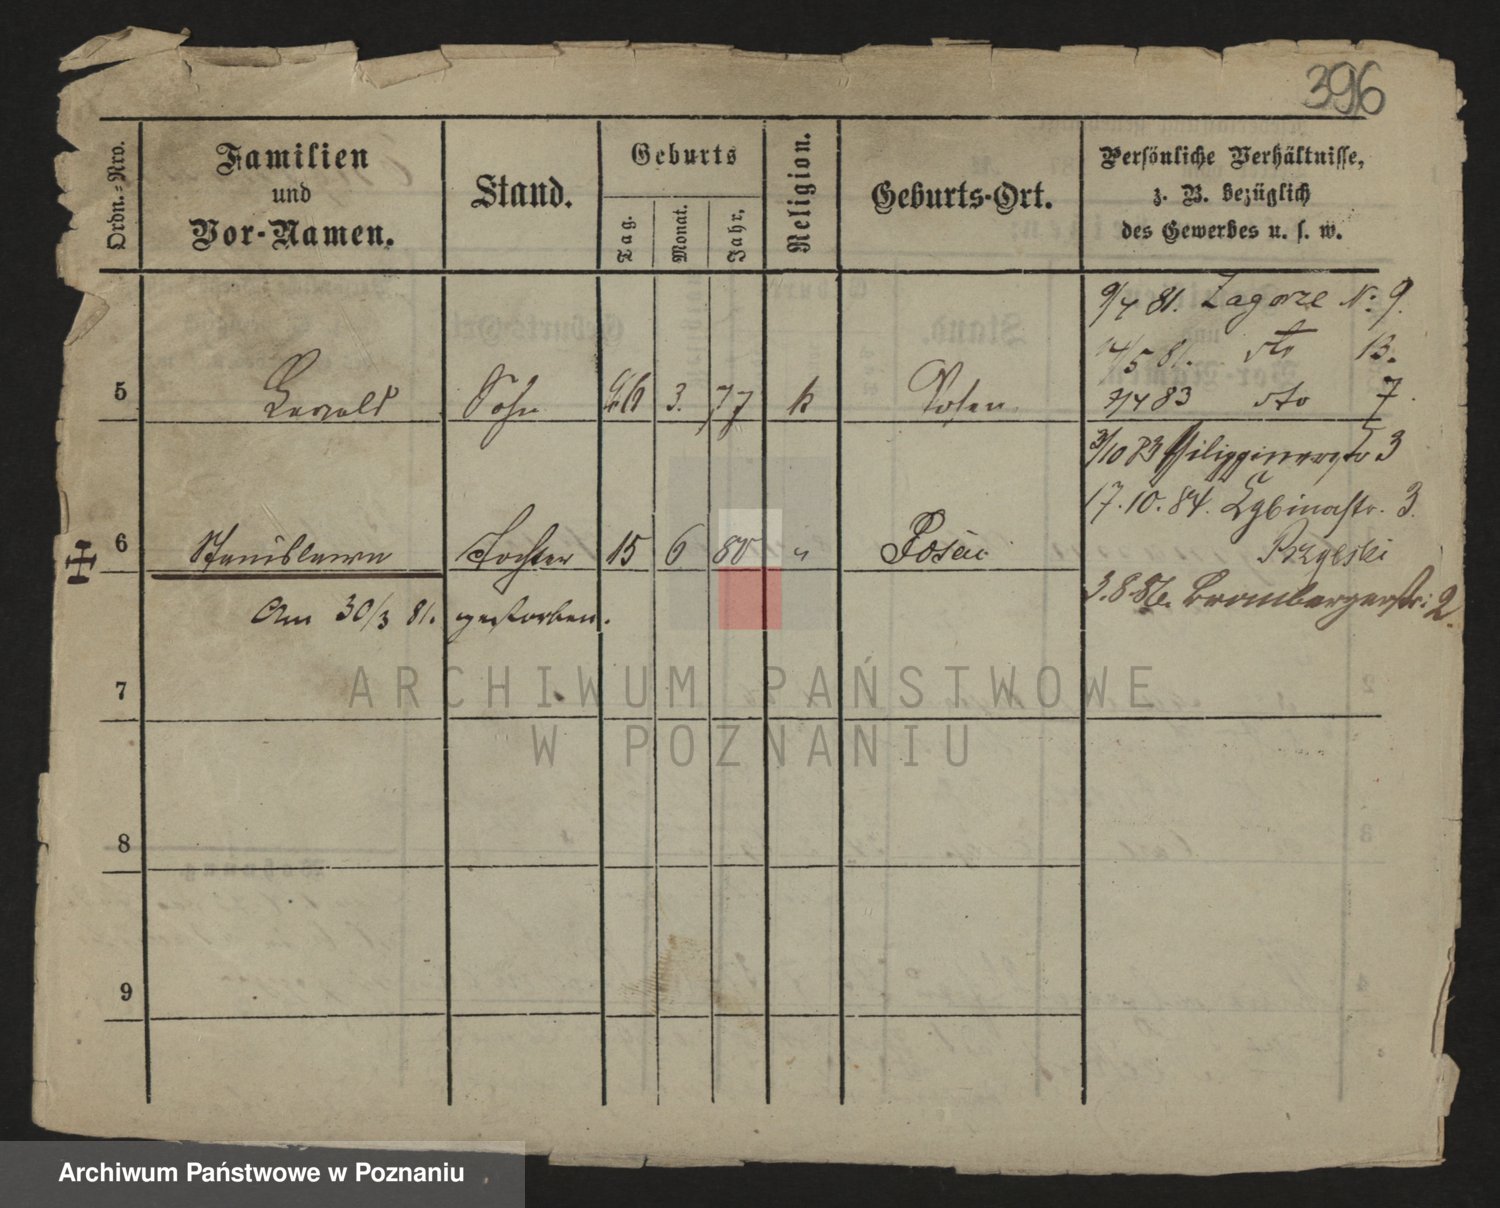 396
Ordn.-Nro.
Familien
und
Vor-Namen.
Stand.
Geburts
Tag.
Monat.
Jahr.
Religion.
Geburts-Ort.
Persönliche Verhältnisse,
z. B. bezüglich
des Gewerbes u. s. w.
9/4 81. Zagorze N: 9.
/5 81. dto 13.
5 Sohn 3. 77 k Posen
2/4 83 dto 7
3/10 83 Philippinerstr 3
17.10.84. 3.
6 Stanislawa Tochter 15 6 80 " Posen
3.8.86. Brombergerstr. 2.
Am 30/3 81. gestorben.
7
ARCHIWUM PAŃSTWOWE
W POZNANIU
8
9
Archiwum Państwowe w Poznaniu